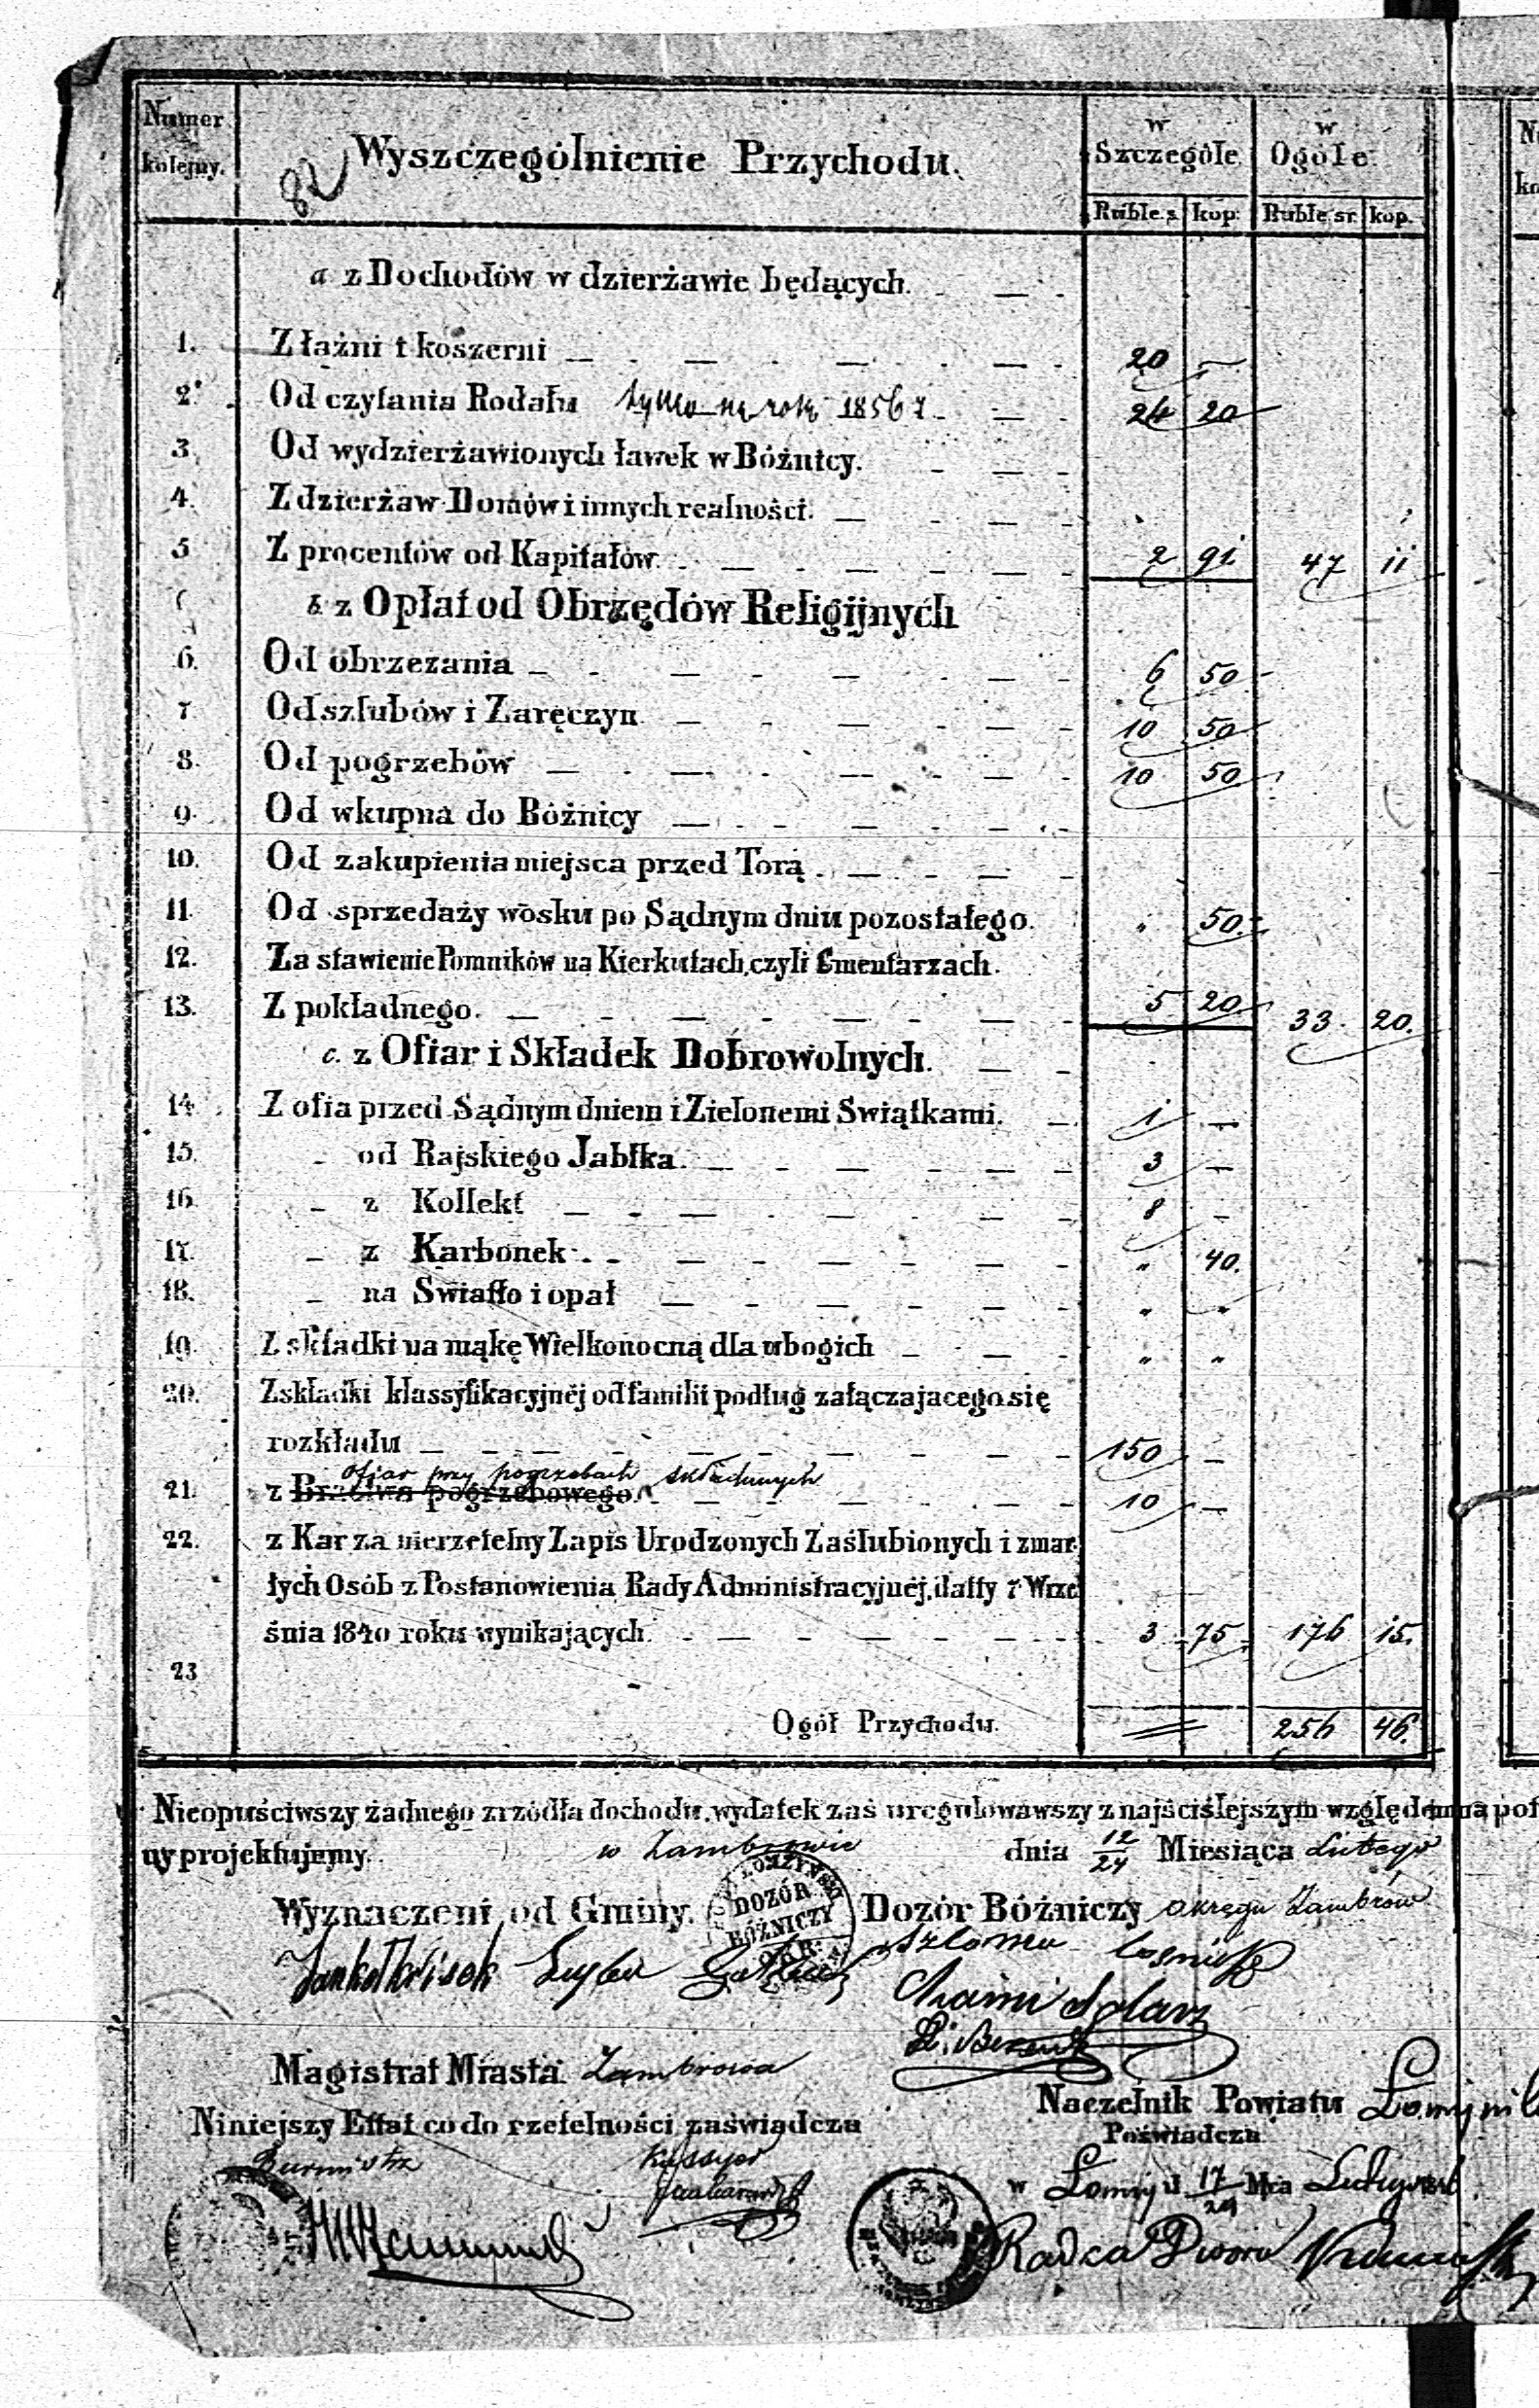 Numer kolejny.
82
Wyszczególnienie Przychodu.
w Szczególe
w Ogóle
Ruble s. kop: Ruble sr. kop.
a z Dochodów w dzierżawie będących.
1. Z łaźni i koszerni 20 —
2. Od czytania Rodału tylko na rok 1856 24 20
3. Od wydzierżawionych ławek w Bóźnicy.
4. Z dzierżaw Domów i innych realności.
5 Z procentów od Kapitałów. 2 91 47 11
b z Opłat od Obrzędów Religijnych
6. Od obrzezania 6 50
7 Od szlubów i Zaręczyn 10 50
8. Od pogrzebów 10 50
9. Od wkupna do Bóźnicy
10. Od zakupienia miejsca przed Torą
11. Od sprzedaży wosku po Sądnym dniu pozostałego. " 50
12. Za stawienie Pomników na Kierkutach, czyli Cmentarzach.
13. Z pokładnego. 5 20 33 20.
c. z Ofiar i Składek Dobrowolnych.
14 Z ofia przed Sądnym dniem i Zielonemi Swiątkami. 1 —
15. - od Rajskiego Jabłka. 3 —
16 - z Kollekt 8 -
17. - z Karbonek " 40.
18. - na Swiatło i opał " "
19. Z składki na mąkę Wielkonocną dla ubogich " "
20. Z składki klassyfikacyjnéj od familii podług załączajacego się
rozkładu 150 —
ofiar przy pogrzebach składanych
21. z Bractwa pogrzebowego 10 —
22. z Kar za nierzetelny Zapis Urodzonych Zaślubionych i zmar
łych Osób z Postanowienia Rady Administracyjnéj, datty 7 Wrze
śnia 1840 roku wynikających. 3 75 176 15.
23
Ogół Przychodu. 256 46.
Nieopuściwszy żadnego zrzódła dochodu, wydatek zaś uregulowawszy z najściślejszym względem na pot
ny projektujemy. w Zambrowie dnia 12/24 Miesiąca Lutego
Wyznaczeni od Gminy. Dozór Bóźniczy okręgu Zambrów
DOZÓR BÓŹNICZY OKR:
Szloma
Chaim
Magistrat Miasta Zambrowa
Naczelnik Powiatu
Niniejszy Ettat co do rzetelności zaświadcza
Poświadcza
Burmistrz Kassyer
w 17/29 Mca
Radca Dworu